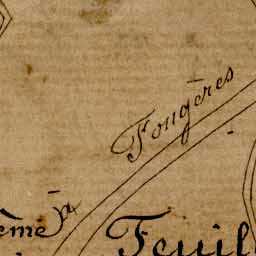 Fougères
ème
Feuil